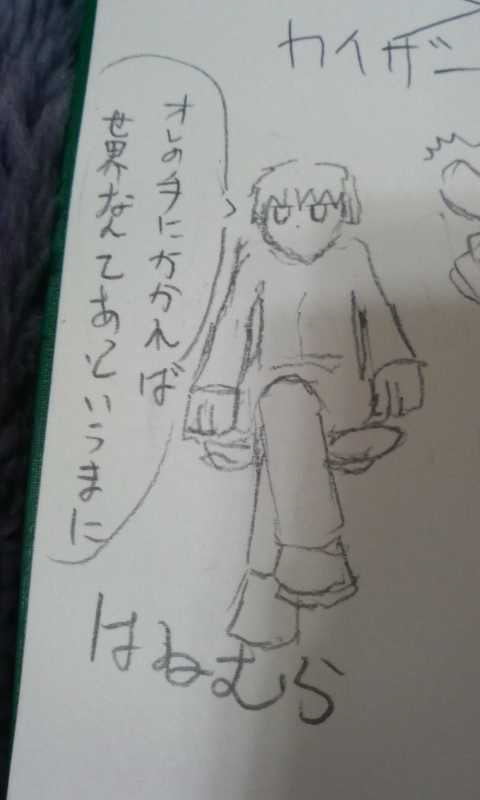 カイザー
オレの手にかかれば
世界なんてあっというまに
はねむら